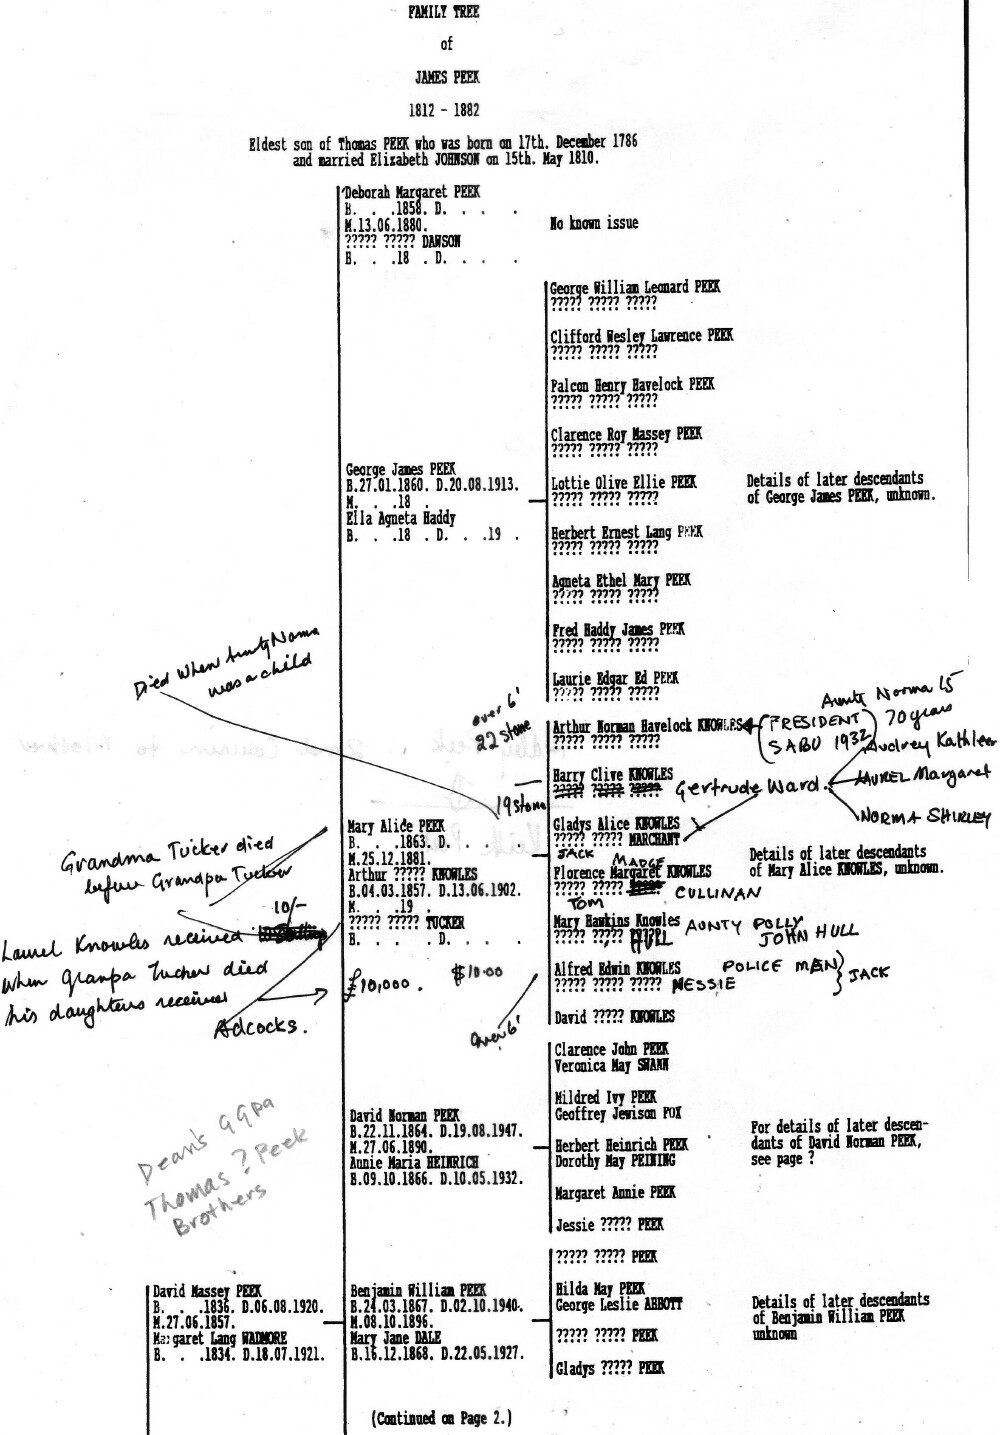 FAMILY TREE
of
JAMES PEEK
1812 - 1882
Eldest son of Thomas PEEK who was born on 17th. December 1786
and married Elizabeth JOHNSON on 15th. May 1810.
Deborah Margaret PEEK
B. . .1858. D. . . .
M.13.06.1880.
????? ????? DAWSON
B. . .18 . D. . . .
No known issue
George William Leonard PEEK
????? ????? ?????
Clifford Wesley Lawrence PEEK
????? ????? ?????
Falcon Henry Havelock PEEK
????? ????? ?????
Clarence Roy Massey PEEK
????? ????? ?????
George James PEEK
B.27.01.1860. D.20.08.1913.
M. . .18 .
Ella Agneta Haddy
B. . .18 . D. . .19 .
Lottie Olive Ellie PEEK
????? ????? ?????
Details of later descendants
of George James PEEK, unknown.
Herbert Ernest Lang PEEK
????? ????? ?????
Agneta Ethel Mary PEEK
????? ????? ?????
Fred Haddy James PEEK
????? ????? ?????
Laurie Edgar Ed PEEK
????? ????? ?????
Died when Aunty Norma
was a child
over 6'
22 stone
Arthur Norman Havelock KNOWLES
????? ????? ?????
(PRESIDENT)
SABU 1932
Aunty Norma is
70 years
Harry Clive KNOWLES
????? ????? ?????
19 stone
Gertrude Ward.
Audrey Kathleen
LAUREL Margaret
NORMA SHIRLEY
Gladys Alice KNOWLES
????? ????? MARCHANT
JACK
Mary Alice PEEK
B. . .1863. D. . . .
M.25.12.1881.
Arthur ????? KNOWLES
B.04.03.1857. D.13.06.1902.
M. . .19 .
????? ????? TUCKER
B. . . .D. . . .
MADGE
Florence Margaret KNOWLES
????? ?????
TOM
CULLINAN
Details of later descendants
of Mary Alice KNOWLES, unknown.
Grandma Tucker died
before Grandpa Tucker
10/-
Laurel Knowles received
when Granpa Tucker died
his daughters received
Adcocks.
£10,000.
$10.00
Mary Hawkins Knowles
????? ????? ?????
HULL
AUNTY POLLY
JOHN HULL
Alfred Edwin KNOWLES
????? ????? ?????
NESSIE
POLICE MAN
JACK
over 6'
David ????? KNOWLES
Clarence John PEEK
Veronica May SWANN
Mildred Ivy PEEK
Geoffrey Jewison FOX
David Norman PEEK
B.22.11.1864. D.19.08.1947.
M.27.06.1890.
Annie Maria HEINRICH
B.09.10.1866. D.10.05.1932.
Herbert Heinrich PEEK
Dorothy May PEINING
For details of later descen-
dants of David Norman PEEK,
see page ?
Margaret Annie PEEK
Jessie ????? PEEK
Dean's GGpa
Thomas ? Peek
Brothers
????? ????? PEEK
David Massey PEEK
B. . .1836. D.06.08.1920.
M.27.06.1857.
Margaret Lang WADMORE
B. . .1834. D.18.07.1921.
Benjamin William PEEK
B.24.03.1867. D.02.10.1940.
M.08.10.1896.
Mary Jane DALE
B.16.12.1868. D.22.05.1927.
Hilda May PEEK
George Leslie ABBOTT
????? ????? PEEK
Gladys ????? PEEK
Details of later descendants
of Benjamin William PEEK
unknown
(Continued on Page 2.)